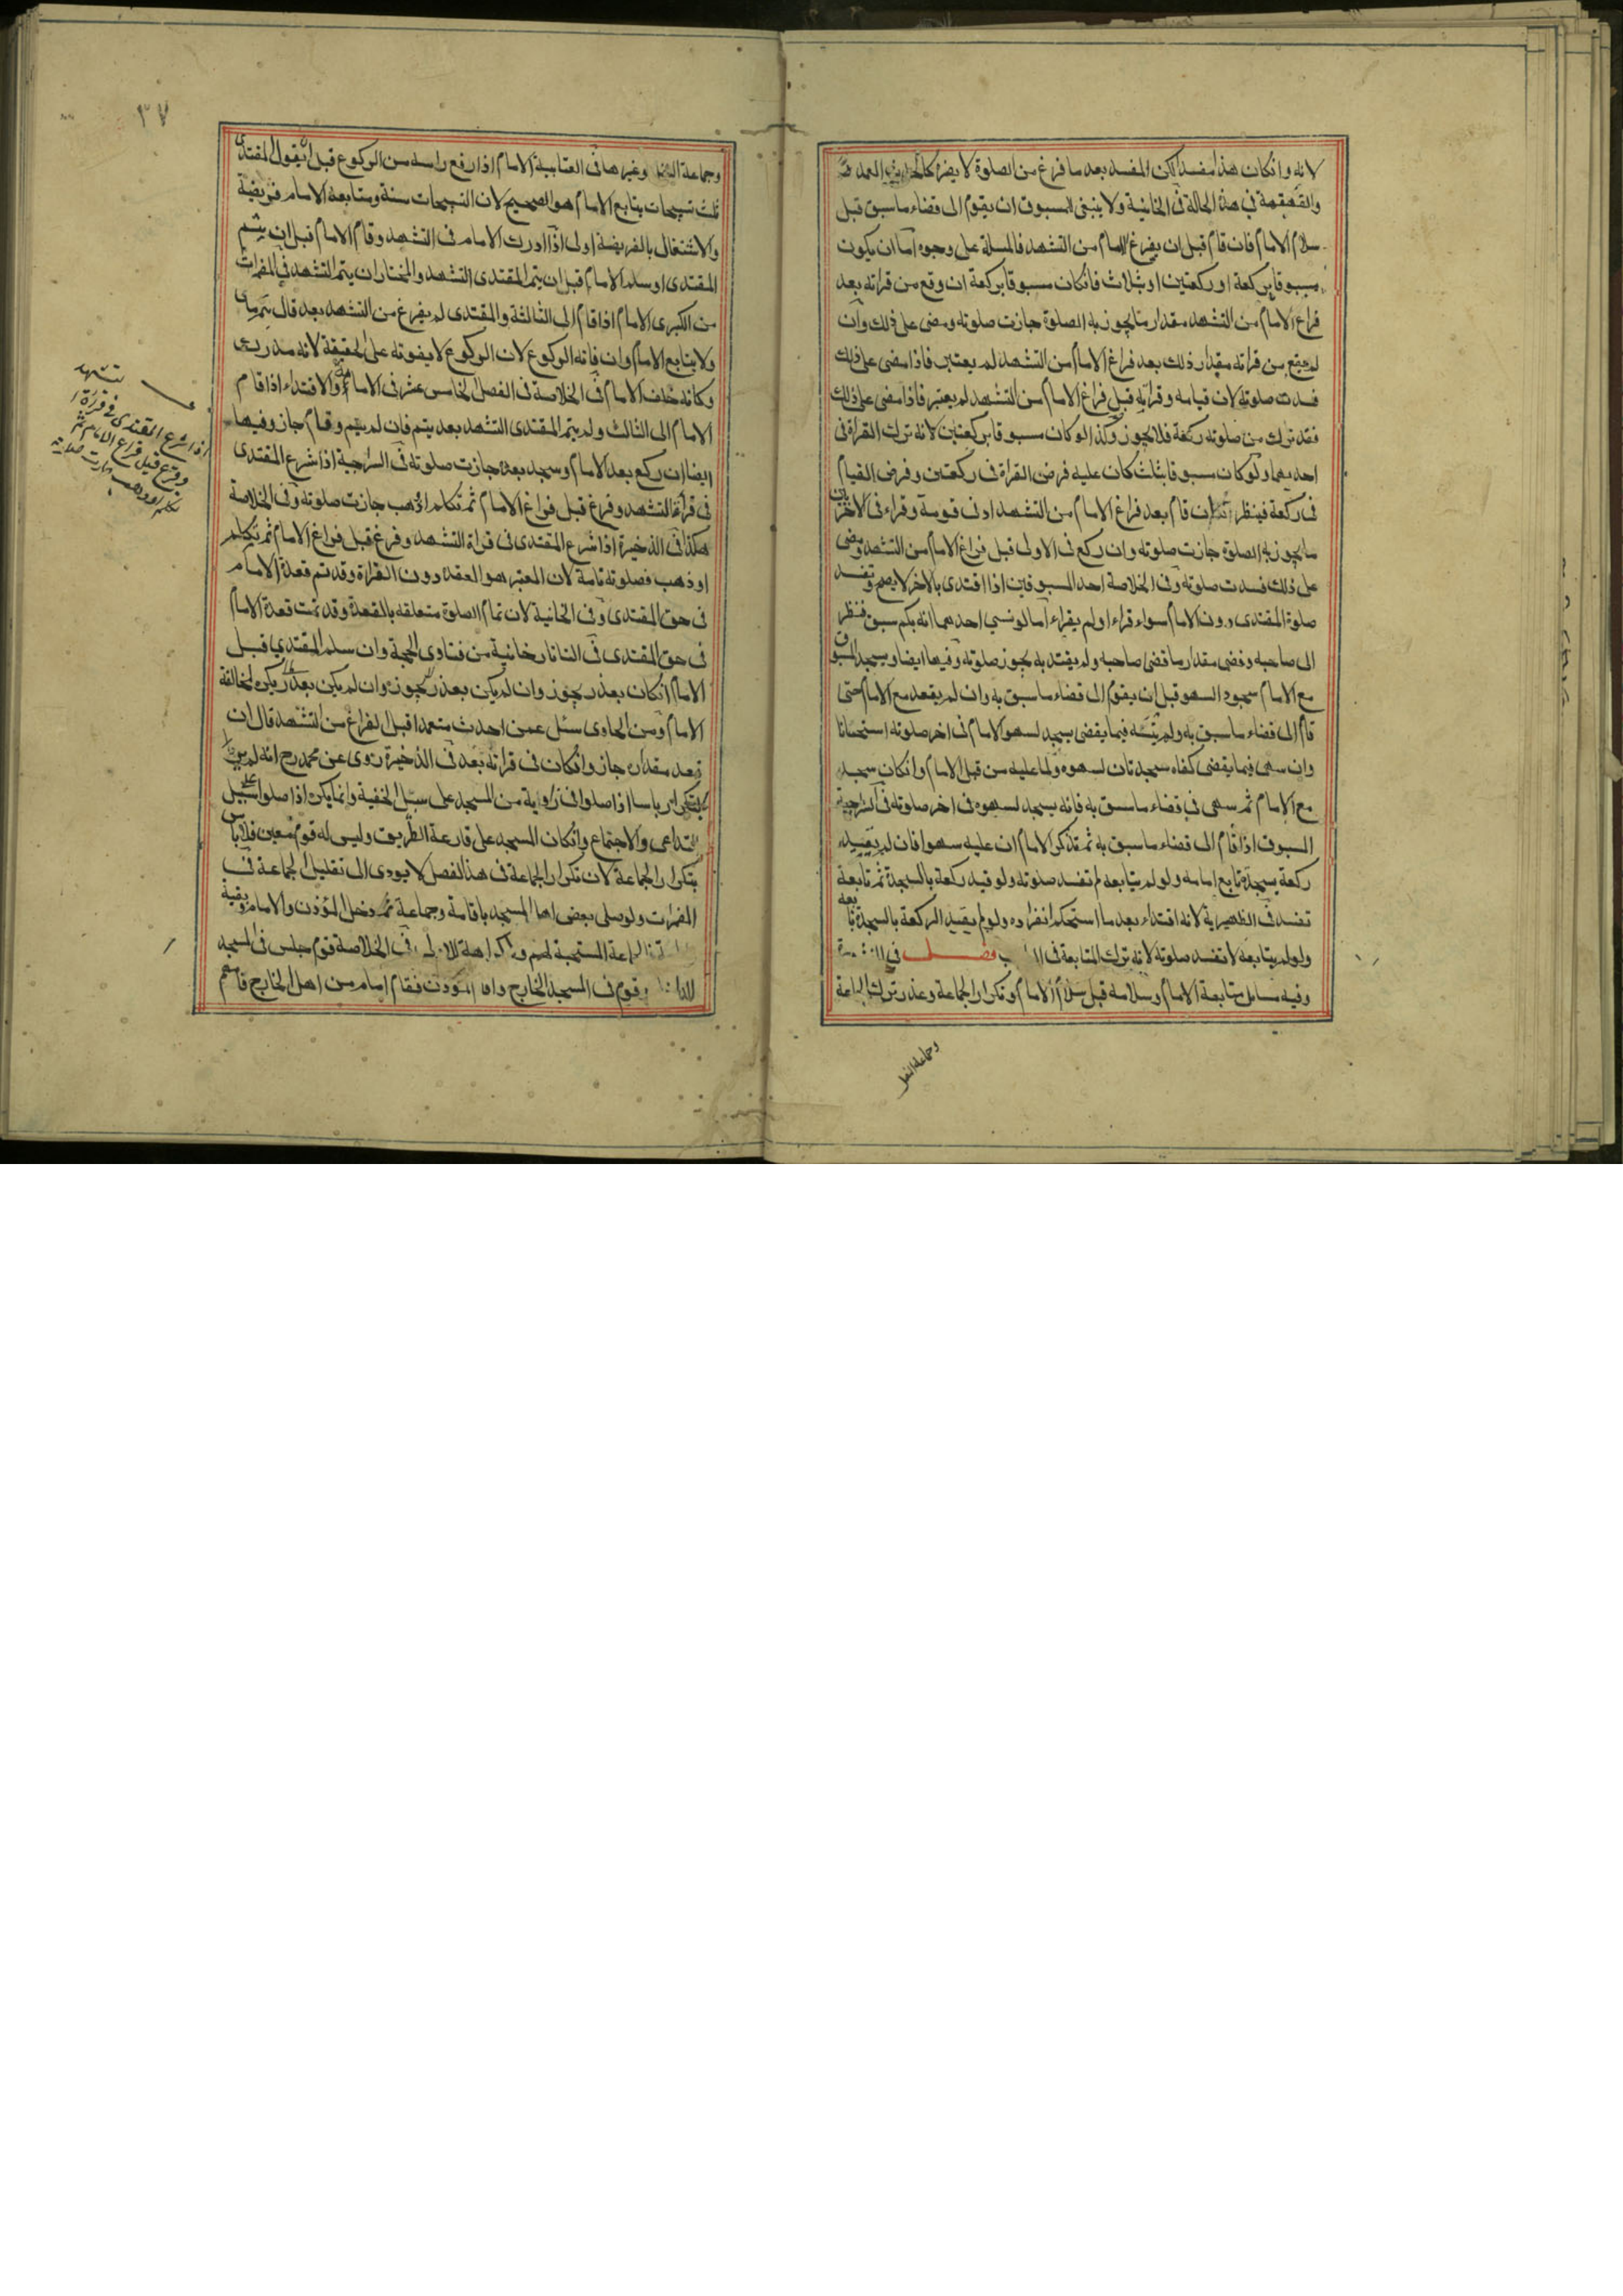 لانه وانكان هذا مفسد لكن المفسد بعد ما فرغ من الصلوة لا يضر العمد
والقهقهة في هذه الحالة في الخانية ولا ينبغي للمسبوق ان يقوم الى قضاء ما سبق قبل
سلام الامام فان قام قبل ان يفرغ الامام من التشهد فالمسلة على وجوه اما ان يكون
مسبوقا بركعة او ركعتين او بثلاث فانكان مسبوقا بركعة ان وقع من قراته بعد
فراغ الامام من التشهد مقدار ما يجوز به الصلوة جازت صلوته ومضى على ذلك وان
لم يقع من قراته مقدار ذلك بعد فراغ الامام من التشهد لم يعتبر فاذا مضى على ذلك
فسدت صلوته لان قيامه وقراته قبل فراغ الامام من التشهد لم يعتبر فاذا مضى على ذلك
فقد ترك من صلوته ركعة فلا يجوز وكذا لو كان مسبوقا بركعتين لانه ترك القراة في
احديهما ولو كان مسبوقا بثلث كان عليه فرض القراة في ركعتين وفرض القيام
في ركعة فينظر ان قام بعد فراغ الامام من التشهد ادنى قومة وقراء في الاخريين
ما يجوز به الصلوة جازت صلوته وان ركع في الاولى قبل فراغ الامام من التشهد ومضى
على ذلك فسدت صلوته وفي الخلاصة احد المسبوقين اذا اقتدى بالاخر لا يصح وتفسد
صلوة المقتدى دون الامام سواء قراء او لم يقراء اما لو نسي احدهما انه بكم سبق فنظر
الى صاحبه وقضى مقدار ما قضى صاحبه ولم يقتد به يجوز صلوته وفيها ايضا ويسجد المسبوق
مع الامام سجود السهو قبل ان يقوم الى قضاء ما سبق به وان لم يقعد مع الامام حتى
قام الى قضاء ما سبق به ولم يسه فيما يقضي يسجد لسهو الامام في اخر صلوته استحسانا
وان سهى فيما يقضي كفاه سجدتان لسهوه ولما عليه من قبل الامام وانكان سجد
مع الامام ثم سهى في قضاء ما سبق به فانه يسجد لسهوه في اخر صلوته في السراجية
المسبوق اذا قام الى قضاء ما سبق به ثم تذكر الامام ان عليه سهوا فان لم يقيد
ركعة بسجدة تابع امامه ولو لم يتابعه لم تفسد صلوته ولو قيد ركعة بالسجدة ثم تابعه
تفسد في الظهيرية لانه اقتداء بعد ما استحكم انفراده ولو لم يقيد الركعة بالسجدة تابعه
ولو لم يتابعه لا تفسد صلوته لانه ترك المتابعة في فصل في
وفيه مسايل متابعة الامام وسلامه قبل سلام الامام وتكرار الجماعة وعذر ترك الجماعة
وجماعة النفل
٣٧
وجماعة وغيرها في العتابية الامام اذا رفع راسه من الركوع قبل ان يقول المقتدى
ثلث تسبيحات يتابع الامام هو الصحيح لان التسبيحات سنة ومتابعة الامام فريضة
والاشتغال بالفريضة اولى اذا ادرك الامام في التشهد وقام الامام قبل ان يتم
المقتدى او سلم الامام قبل ان يتم المقتدى التشهد والمختار ان يتم التشهد في المضمرات
من الكبرى الامام اذا قام الى الثالثة والمقتدى لم يفرغ من التشهد بعد قال
ولا يتابع الامام وان فاته الركوع لان الركوع لا يفوته على الحقيقة لانه مدرك
وكانه خلف الامام في الخلاصة في الفصل الخامس عشر في الامامة والاقتداء اذا قام
الامام الى الثالث ولم يتم المقتدى التشهد بعد يتم فان لم يتم وقام جاز وفيها
ايضا ان ركع بعد الامام وسجد بعده جازت صلوته في السراجية اذا شرع المقتدى
في قراة التشهد وفرغ قبل فراغ الامام ثم تكلم او ذهب جازت صلوته وفي الخلاصة
هكذا في الذخيرة اذا شرع المقتدى في قراة التشهد وفرغ قبل فراغ الامام ثم تكلم
او ذهب فصلوته تامة لان المعتبر هو العقدة دون القراة وقد تم قعدة الامام
في حق المقتدى وفي الخانية لان تمام الصلوة متعلقه بالقعدة وقد تمت قعدة الامام
في حق المقتدى في التاتارخانية من فتاوى الحجة وان سلم المقتدي قبل
الامام انكان بعذر يجوز وان لم يكن بعذر يجوز وان لم يكن بعذر يكره لمخالفة
الامام ومن الحاوى سئل عمن احدث متعمدا قبل الفراغ من التشهد قال ان
قعد مقداره جاز وانكان في قراته بعد في الذخيرة روى عن محمد رح انه لم ير
بتكرار باسا اذا صلوا في زاوية من المسجد على سبيل الخفية وانما يكره اذا صلوا على سبيل
التداعى والاجتماع وانكان المسجد على قارعة الطريق وليس له قوم معين فلا باس
بتكرار الجماعة لان تكرار الجماعة في هذا الفصل لا يودى الى تقليل الجماعة في
المضمرات ولو صلى بعض اهل المسجد باقامة وجماعة ثم دخل المؤذن والامام وبقية
الجماعة المستحبة لهم وكراهة للاولى في الخلاصة قوم جلس في المسجد
وقوم في المسجد الخارج واقام المؤذن فقام امام من اهل الخارج فامهم
تشهد
اذا شرع المقتدى في قراءة
وفرغ قبل فراغ الامام ثم
تكلم او ذهب جازت صلاته